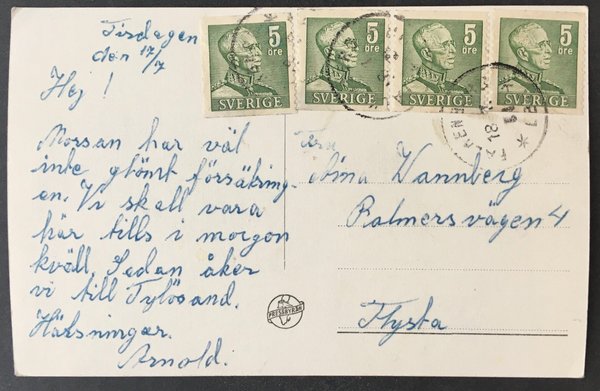 Tisdagen
den 17/7
Hej!
Morsan har väl
inte glömt försäkring-
en. Vi skall vara
här tills i morgon
kväll. Sedan åker
vi till Tylösand.
Hälsningar.
Arnold.
5 öre SVERIGE
5 öre SVERIGE
5 öre SVERIGE
5 öre SVERIGE
Wannberg
Palmersvägen 4
Flysta
PRESSBYRÅN